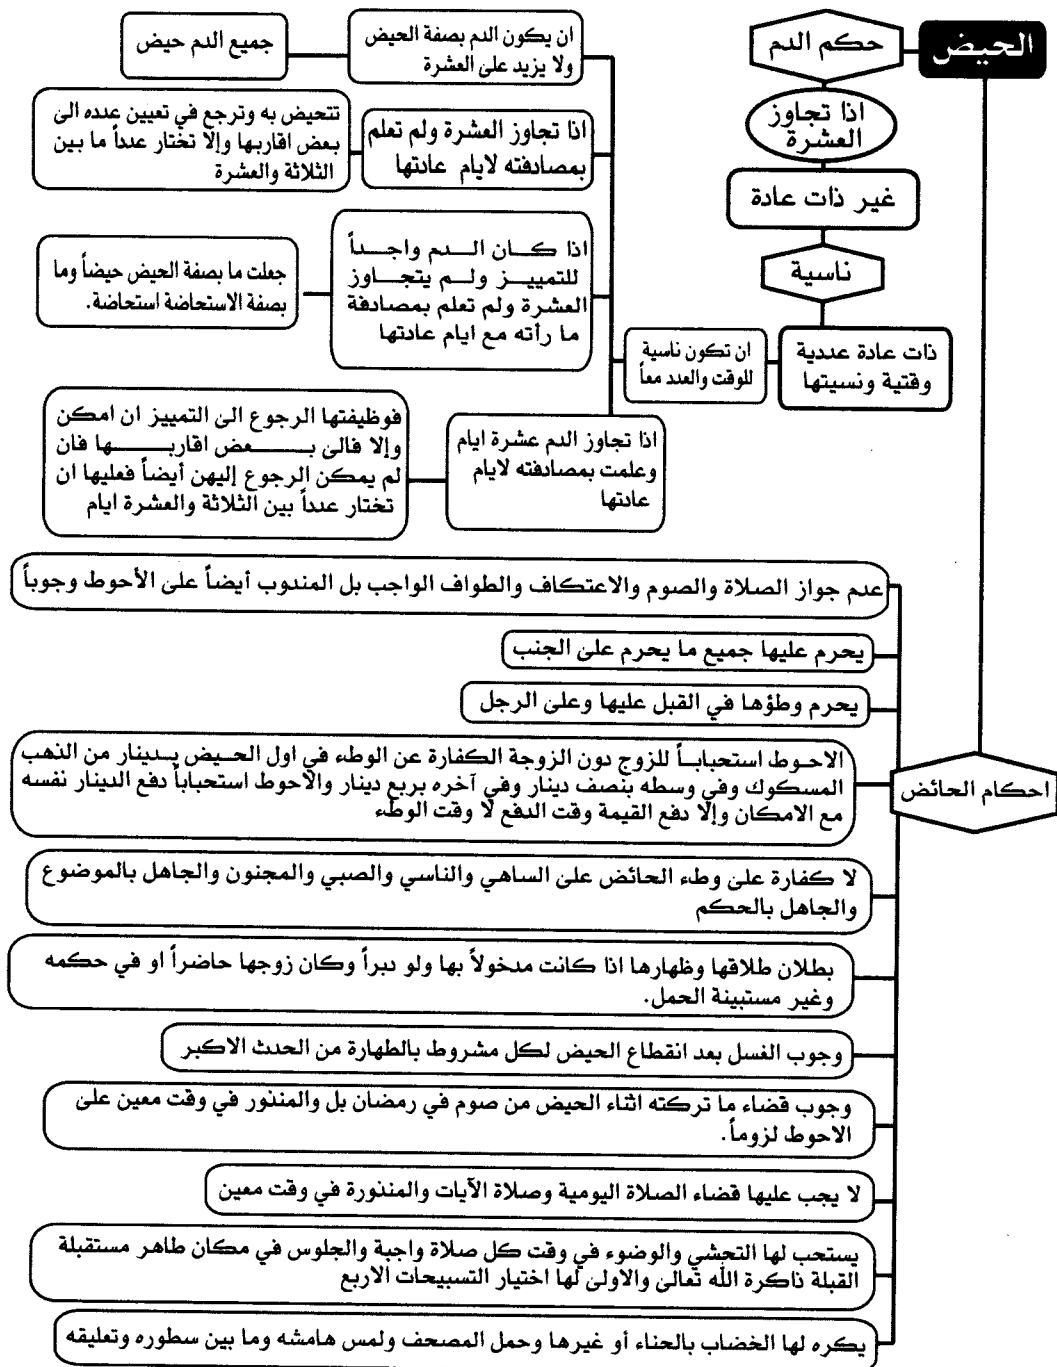 الحيض
حكم الدم
اذا تجاوز
العشرة
غير ذات عادة
ناسية
ذات عادة عددية
وقتية ونسيتها
ان تكون ناسية
للوقت والعدد معاً
ان يكون الدم بصفة الحيض
ولا يزيد على العشرة
جميع الدم حيض
اذا تجاوز العشرة ولم تعلم
بمصادفته لايام عادتها
تتحيض به وترجع في تعيين عدده الى
بعض اقاربها وإلا تختار عدداً ما بين
الثلاثة والعشرة
اذا كان الدم واجداً
للتمييز ولم يتجاوز
العشرة ولم تعلم بمصادفة
ما رأته مع ايام عادتها
جعلت ما بصفة الحيض حيضاً وما
بصفة الاستحاضة استحاضة.
اذا تجاوز الدم عشرة ايام
وعلمت بمصادفته لايام
عادتها
فوظيفتها الرجوع الى التمييز ان امكن
وإلا فالى بعض اقاربها فان
لم يمكن الرجوع إليهن أيضاً فعليها ان
تختار عدداً بين الثلاثة والعشرة ايام
احكام الحائض
عدم جواز الصلاة والصوم والاعتكاف والطواف الواجب بل المندوب أيضاً على الأحوط وجوباً
يحرم عليها جميع ما يحرم على الجنب
يحرم وطؤها في القبل عليها وعلى الرجل
الاحوط استحباباً للزوج دون الزوجة الكفارة عن الوطء في اول الحيض بدينار من الذهب
المسكوك وفي وسطه بنصف دينار وفي آخره بربع دينار والاحوط استحباباً دفع الدينار نفسه
مع الامكان وإلا دفع القيمة وقت الدفع لا وقت الوطء
لا كفارة على وطء الحائض على الساهي والناسي والصبي والمجنون والجاهل بالموضوع
والجاهل بالحكم
بطلان طلاقها وظهارها اذا كانت مدخولاً بها ولو دبراً وكان زوجها حاضراً او في حكمه
وغير مستبينة الحمل.
وجوب الغسل بعد انقطاع الحيض لكل مشروط بالطهارة من الحدث الاكبر
وجوب قضاء ما تركته اثناء الحيض من صوم في رمضان بل والمنذور في وقت معين على
الاحوط لزوماً.
لا يجب عليها قضاء الصلاة اليومية وصلاة الآيات والمنذورة في وقت معين
يستحب لها التحشي والوضوء في وقت كل صلاة واجبة والجلوس في مكان طاهر مستقبلة
القبلة ذاكرة الله تعالى والاولى لها اختيار التسبيحات الاربع
يكره لها الخضاب بالحناء أو غيرها وحمل المصحف ولمس هامشه وما بين سطوره وتعليقه